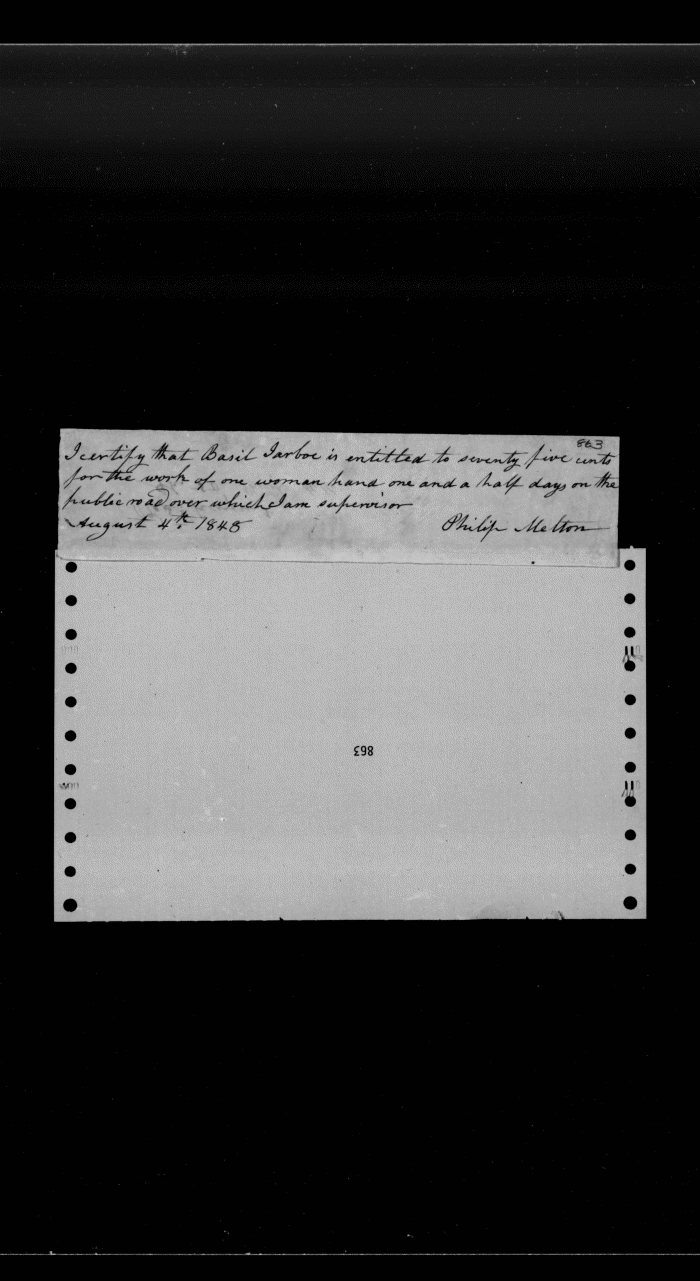 863
I certify that Basil Jarboe is entitled to seventy five cents
for the work of one woman hand one and a half days on the
public road over which I am supervisor
August 4th 1845 Philip Melton
863